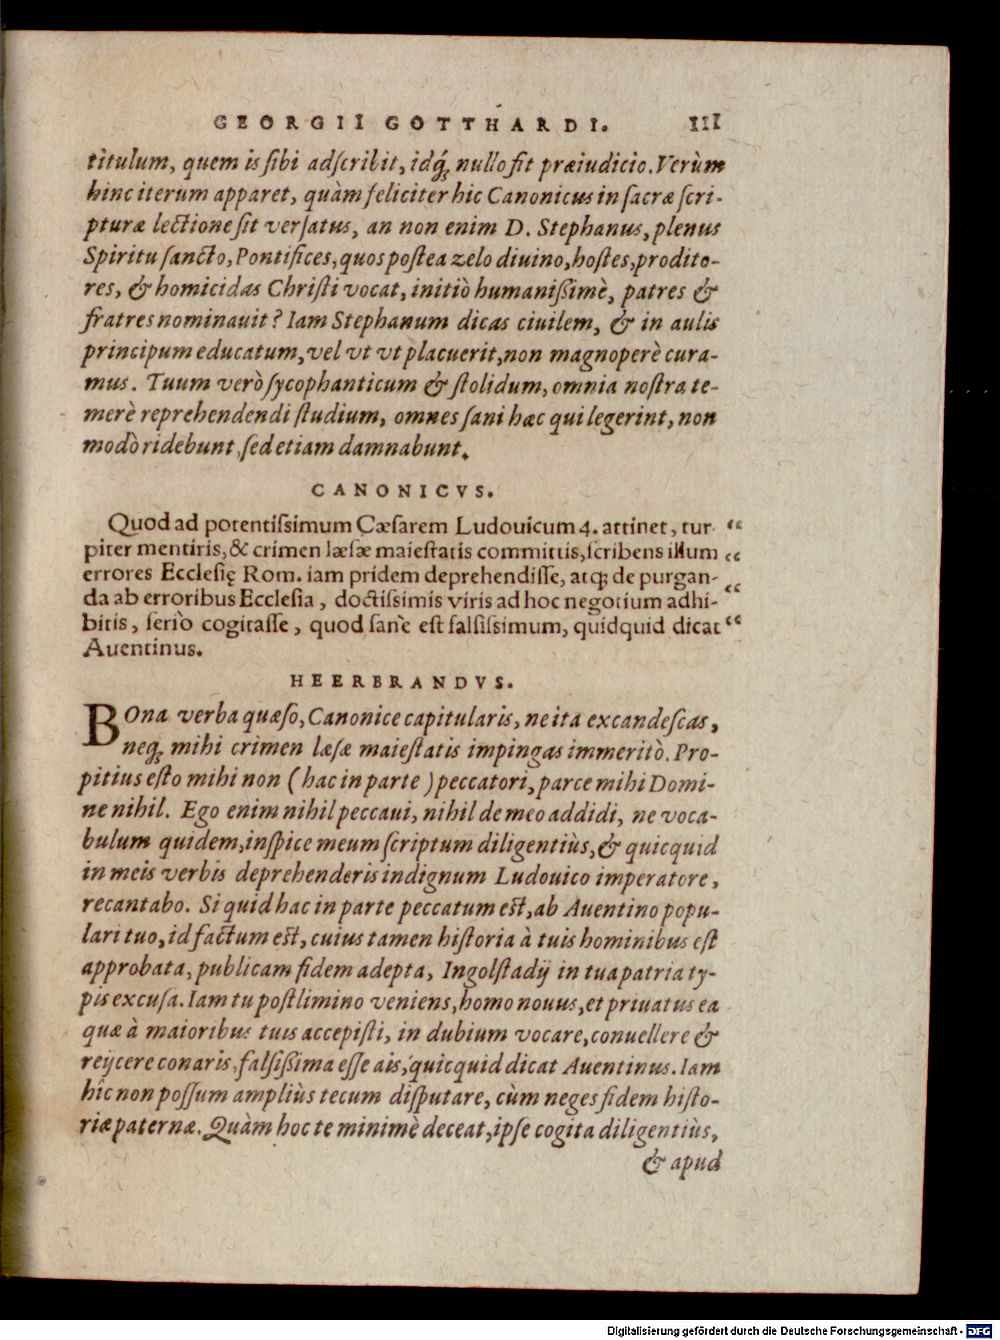 GEORGII GOTTHARDI. III
titulum, quem is sibi adſcribit, idq́; nullo ſit præiudicio. Verùm
hinc iterum apparet, quàm feliciter hic Canonicus in ſacræ ſcri-
pturæ lectione ſit verſatus, an non enim D. Stephanus, plenus
Spiritu ſancto, Pontifices, quos poſtea zelo diuino, hoſtes, prodito-
res, & homicidas Chriſti vocat, initiò humaniſſimè, patres &
fratres nominauit? Iam Stephanum dicas ciuilem, & in aulis
principum educatum, vel vt vt placuerit, non magnoperè cura-
mus. Tuum verò ſycophanticum & ſtolidum, omnia noſtra te-
merè reprehendendi ſtudium, omnes ſani hæc qui legerint, non
modò ridebunt, ſed etiam damnabunt.
CANONICVS.
Quod ad potentiſsimum Cæſarem Ludouicum 4. attinet, tur- “
piter mentiris, & crimen læſæ maieſtatis committis, ſcribens illum “
errores Eccleſię Rom. iam pridem deprehendiſſe, atq; de purgan- “
da ab erroribus Eccleſia, doctiſsimis viris ad hoc negotium adhi-
bitis, ſeriò cogitaſſe, quod ſanè eſt falſiſsimum, quidquid dicat “
Auentinus.
HEERBRANDVS.
BOna verba quæſo, Canonice capitularis, ne ita excandeſcas,
neq́; mihi crimen læſæ maieſtatis impingas immeritò. Pro-
pitius eſto mihi non (hac in parte) peccatori, parce mihi Domi-
ne nihil. Ego enim nihil peccaui, nihil de meo addidi, ne voca-
bulum quidem, inſpice meum ſcriptum diligentiùs, & quicquid
in meis verbis deprehenderis indignum Ludouico imperatore,
recantabo. Si quid hac in parte peccatum eſt, ab Auentino popu-
lari tuo, id factum eſt, cuius tamen hiſtoria à tuis hominibus eſt
approbata, publicam fidem adepta, Ingolſtadij in tua patria ty-
pis excuſa. Iam tu poſtlimino veniens, homo nouus, et priuatus ea
quæ à maioribus tuis accepiſti, in dubium vocare, conuellere &
reijcere conaris, falſiſſima eſſe ais, quicquid dicat Auentinus. Iam
hîc non poſſum ampliùs tecum diſputare, cùm neges fidem hiſto-
riæ paternæ. Quàm hoc te minimè deceat, ipſe cogita diligentiùs,
& apud
Digitalisierung gefördert durch die Deutsche Forschungsgemeinschaft - DFG